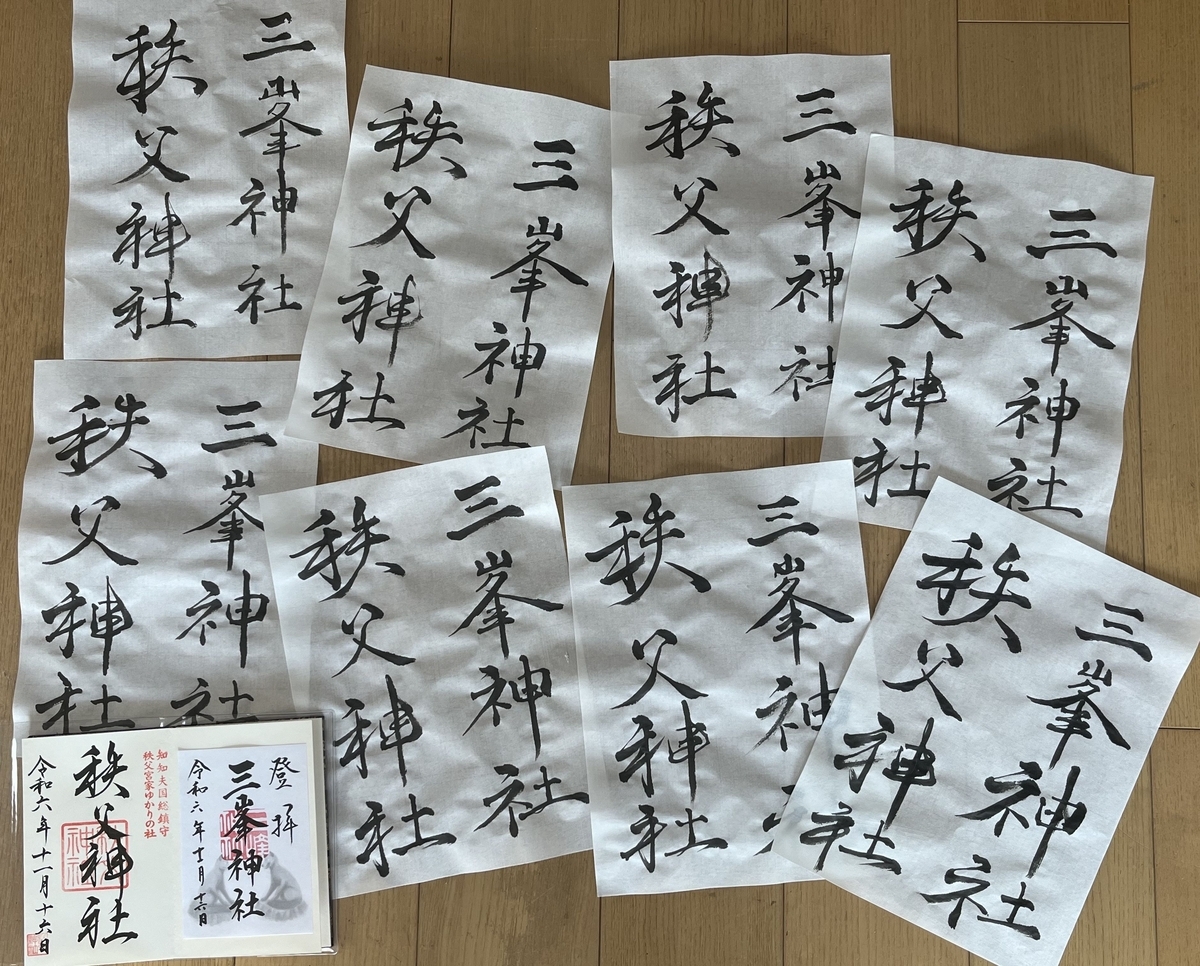 三峯神社
秩父神社
三峯神社
秩父神社
三峯神社
秩父神社
三峯神社
秩父神社
三峯神社
秩父神社
三峯神社
秩父神社
三峯神
秩父神社
三峯神社
秩父神社
登拝
三峯神社
令和六年十一月十六日
知知夫国総鎮守
秩父宮家ゆかりの社
秩父神社
令和六年十一月十六日